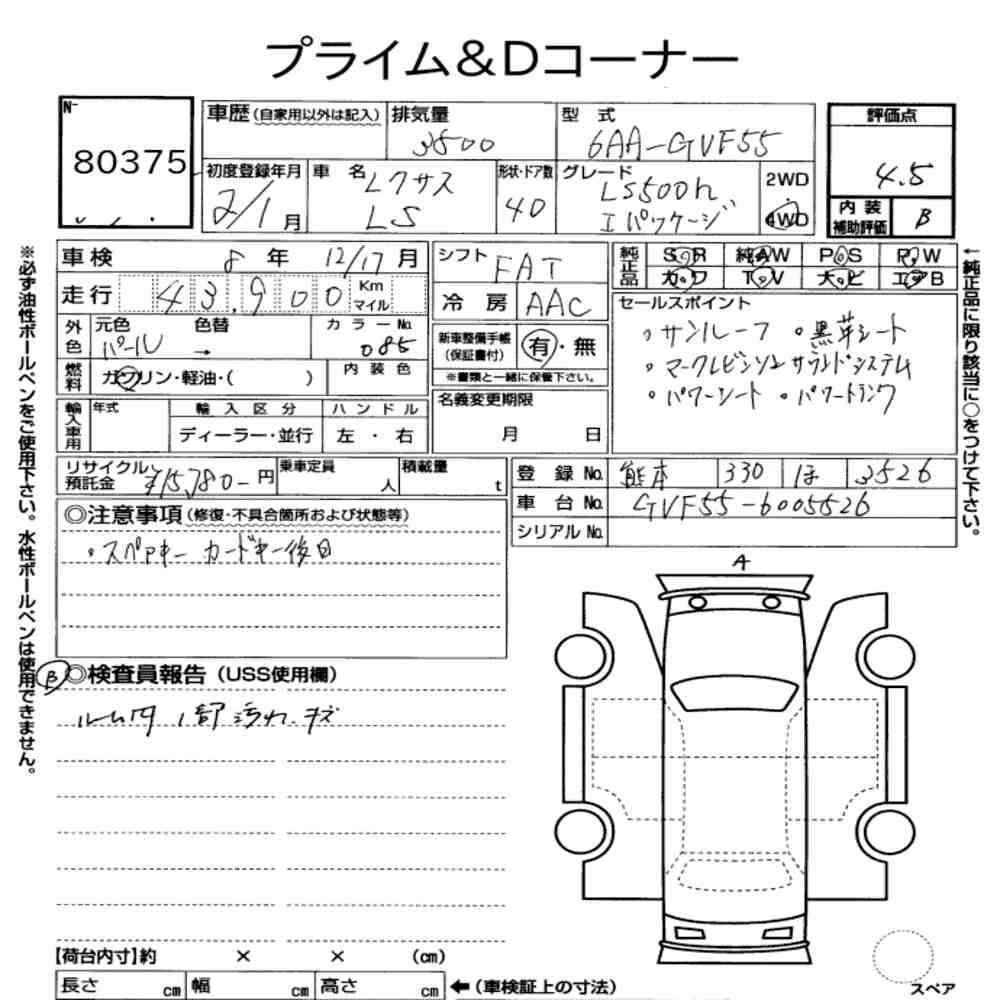 プライム&Dコーナー
N-
80375
車歴(自家用以外は記入) 排気量 3500 型式 6AA-GVF55
評価点 4.5
初度登録年月 2/1月 車名 レクサス LS 形状・ドア数 4D グレード LS500h Iパッケージ 2WD 4WD
内装補助評価 B
車検 8年 12/17月 シフト FAT
純正品 S・R 純AW P・S P・W
カ・ワ T・V ナ・ビ エアB
走行 43,900 Km マイル 冷房 AAC
外色 元色 パール 色替 → カラーNo. 085
新車整備手帳(保証書付) 有・無
※書類と一緒に保管下さい。
燃料 ガソリン・軽油・( ) 内装色
セールスポイント
・サンルーフ ・黒革シート
・マークレビンソンサラウンドシステム
・パワーシート ・パワートランク
輸入車用 年式 輸入区分 ハンドル
ディーラー・並行 左・右
名義変更期限
月 日
リサイクル預託金 ¥15,780-円 乗車定員 人 積載量 t
登録No. 熊本 330 ほ 3526
車台No. GVF55-6005526
シリアルNo.
◎注意事項(修復・不具合箇所および状態等)
・スペアキー カードキー後日
B ◎検査員報告(USS使用欄)
ルーム内 1部汚れ、キズ
A
【荷台内寸】約 × × (cm)
長さ cm 幅 cm 高さ cm ←(車検証上の寸法)
スペア
※必ず油性ボールペンをご使用下さい。水性ボールペンは使用できません。
←純正品に限り該当に○をつけて下さい。